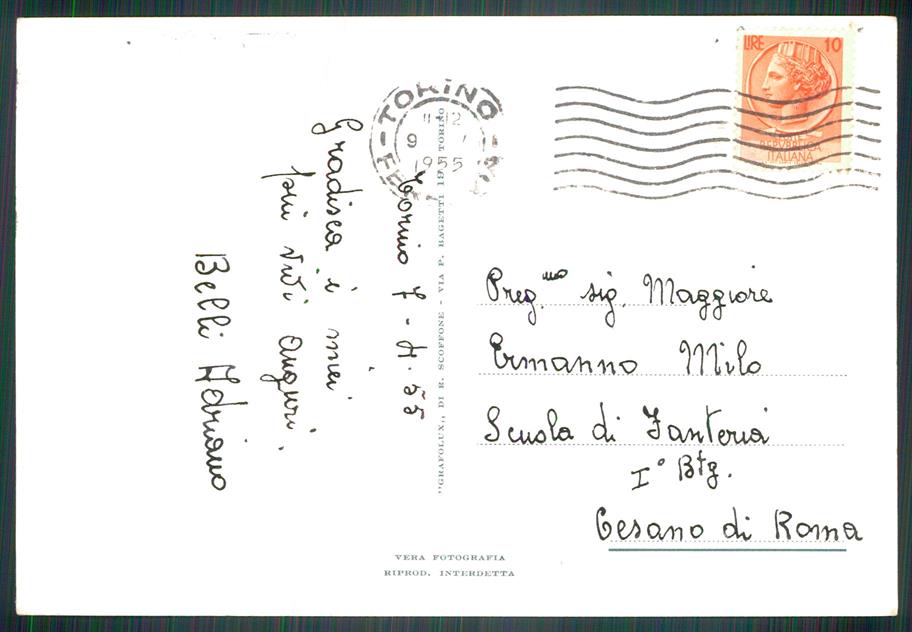 Torino 7-4-55
Gradisca i miei
più vivi auguri.
Belli Adriano
"GRAFOLUX„ DI R. SCOFFONE - VIA P. BAGETTI TORINO
TORINO
9
1955
LIRE 10
REPUBBLICA
ITALIANA
Preg.mo sig. Maggiore
Ermanno Milo
Scuola di Fanteria
I° Btg.
Cesano di Roma
VERA FOTOGRAFIA
RIPROD. INTERDETTA